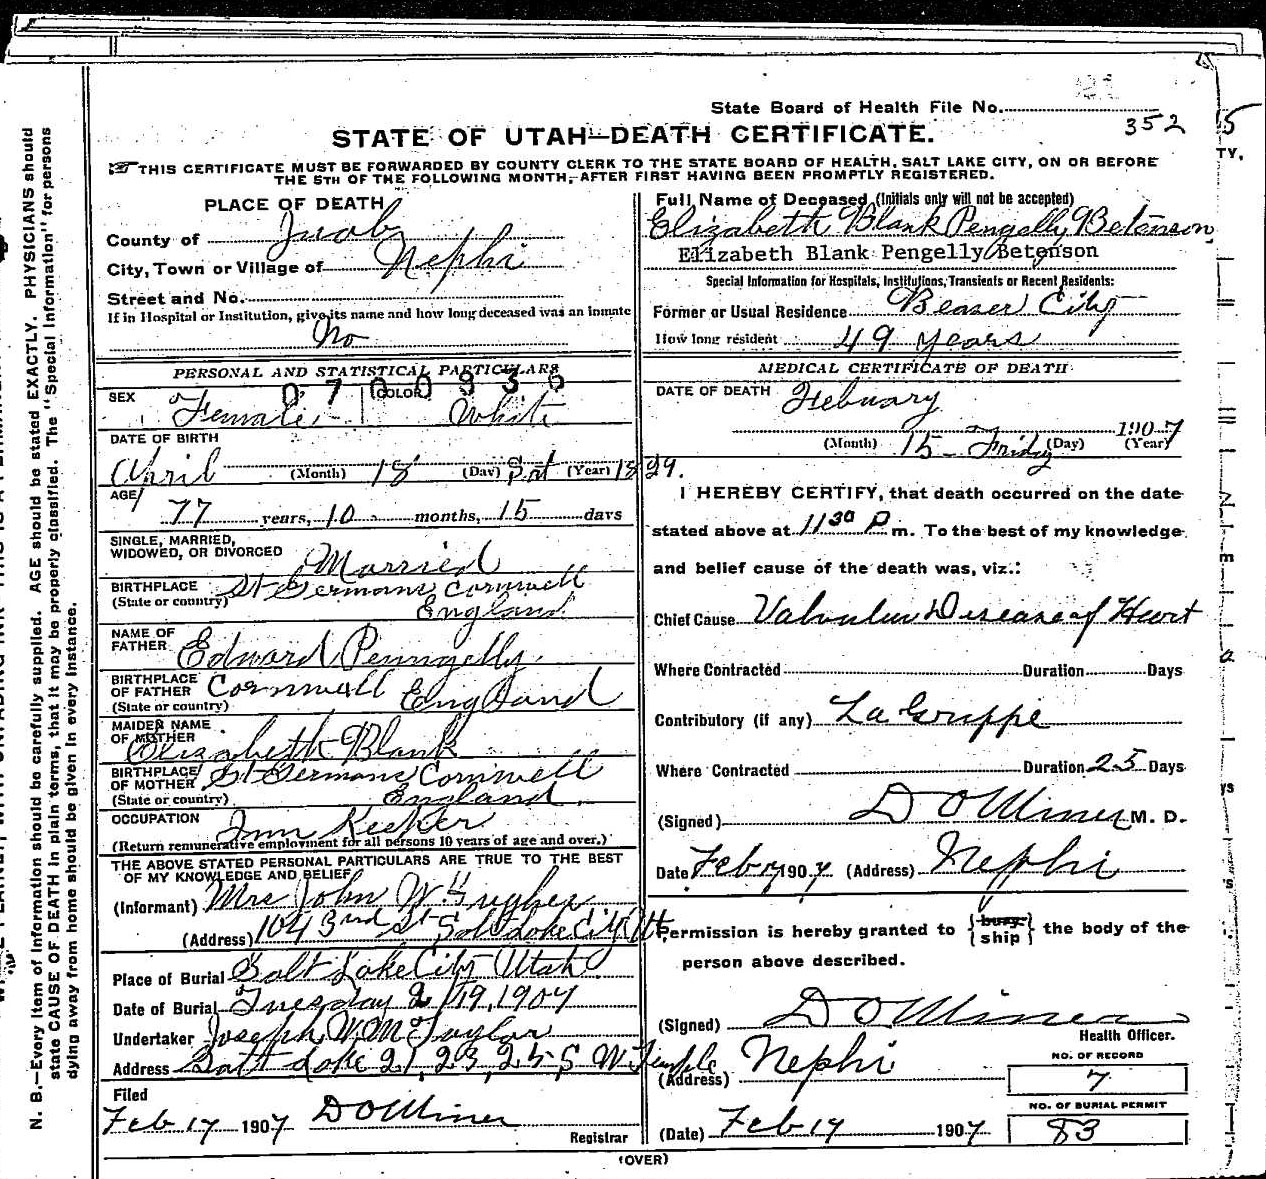 State Board of Health File No.
352
STATE OF UTAH—DEATH CERTIFICATE.
THIS CERTIFICATE MUST BE FORWARDED BY COUNTY CLERK TO THE STATE BOARD OF HEALTH, SALT LAKE CITY, ON OR BEFORE
THE 5TH OF THE FOLLOWING MONTH, AFTER FIRST HAVING BEEN PROMPTLY REGISTERED.
PLACE OF DEATH
County of Juab
City, Town or Village of Nephi
Street and No.
If in Hospital or Institution, give its name and how long deceased was an inmate
No
PERSONAL AND STATISTICAL PARTICULARS
0700936
SEX Female COLOR White
DATE OF BIRTH
April (Month) 18 (Day) Sat (Year) 1829.
AGE 77 years, 10 months, 15 days
SINGLE, MARRIED,
WIDOWED, OR DIVORCED Married
BIRTHPLACE St Germans Cornwell
(State or country) England
NAME OF
FATHER Edward Penngelly
BIRTHPLACE
OF FATHER Cornwall England
(State or country)
MAIDEN NAME
OF MOTHER Elizabeth Blank
BIRTHPLACE
OF MOTHER St Germans Cornwell
(State or country) England
OCCUPATION Inn Keeper
(Return remunerative employment for all persons 10 years of age and over.)
THE ABOVE STATED PERSONAL PARTICULARS ARE TRUE TO THE BEST
OF MY KNOWLEDGE AND BELIEF
(Informant) Mrs John W Hughes
(Address) 104 3rd St Salt Lake City Ut.
Place of Burial Salt Lake City Utah
Date of Burial Tuesday 2/19, 1907
Undertaker Joseph Wm Taylor
Address Salt Lake 21, 23, 25 S W Temple
Filed
Feb 17 1907 D O Miner
Registrar
Full Name of Deceased (Initials only will not be accepted)
Elizabeth Blank Pengelly Betenson
Elizabeth Blank Pengelly Betenson
Special Information for Hospitals, Institutions, Transients or Recent Residents:
Former or Usual Residence Beaver City
How long resident 49 years
MEDICAL CERTIFICATE OF DEATH
DATE OF DEATH Febuary
(Month) 15 Friday (Day) 1907 (Year)
I HEREBY CERTIFY, that death occurred on the date
stated above at 11 30 P m. To the best of my knowledge
and belief cause of the death was, viz.:
Chief Cause Valvular Disease of Heart
Where Contracted Duration Days
Contributory (if any) La Grippe
Where Contracted Duration 25 Days
(Signed) D O Miner M. D.
Date Feb 17 1907 (Address) Nephi
Permission is hereby granted to {bury ship} the body of the
person above described.
(Signed) D O Miner
Health Officer.
(Address) Nephi
NO. OF RECORD
7
NO. OF BURIAL PERMIT
83
(Date) Feb 17 1907
(OVER)
N. B.—Every item of information should be carefully supplied. AGE should be stated EXACTLY. PHYSICIANS should
state CAUSE OF DEATH in plain terms, that it may be properly classified. The "Special Information" for persons
dying away from home should be given in every instance.